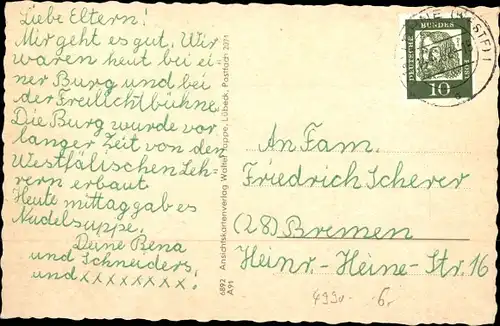 Liebe Eltern!
Mir geht es gut. Wir
waren heut bei ei=
ner Burg und bei
der Freilichtbühne.
Die Burg wurde vor
langer Zeit von den
Westfälischen Leh=
rern erbaut
Heute mittag gab es
Nudelsuppe.
Deine Bena
und Schneiders,
und XXXXXXXX.
6892 Ansichtskartenverlag Walter Lübeck, Postfach 2071
A91
(WESTF)
DEUTSCHE
BUNDES POST
10
An Fam.
Friedrich Scherer
(28) Bremen
Heinr.-Heine-Str. 16
6,-